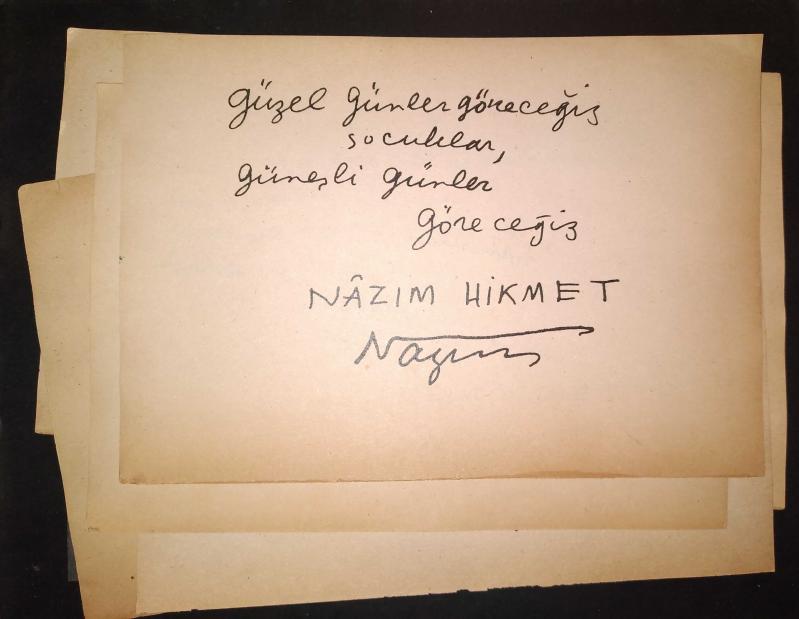 güzel günler göreceğiz
socuklar,
güneşli günler
göreceğiz
NÂZIM HİKMET
Nazım